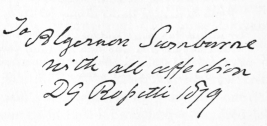 To Algernon Swinburne
with all affection
DG Rossetti 1879